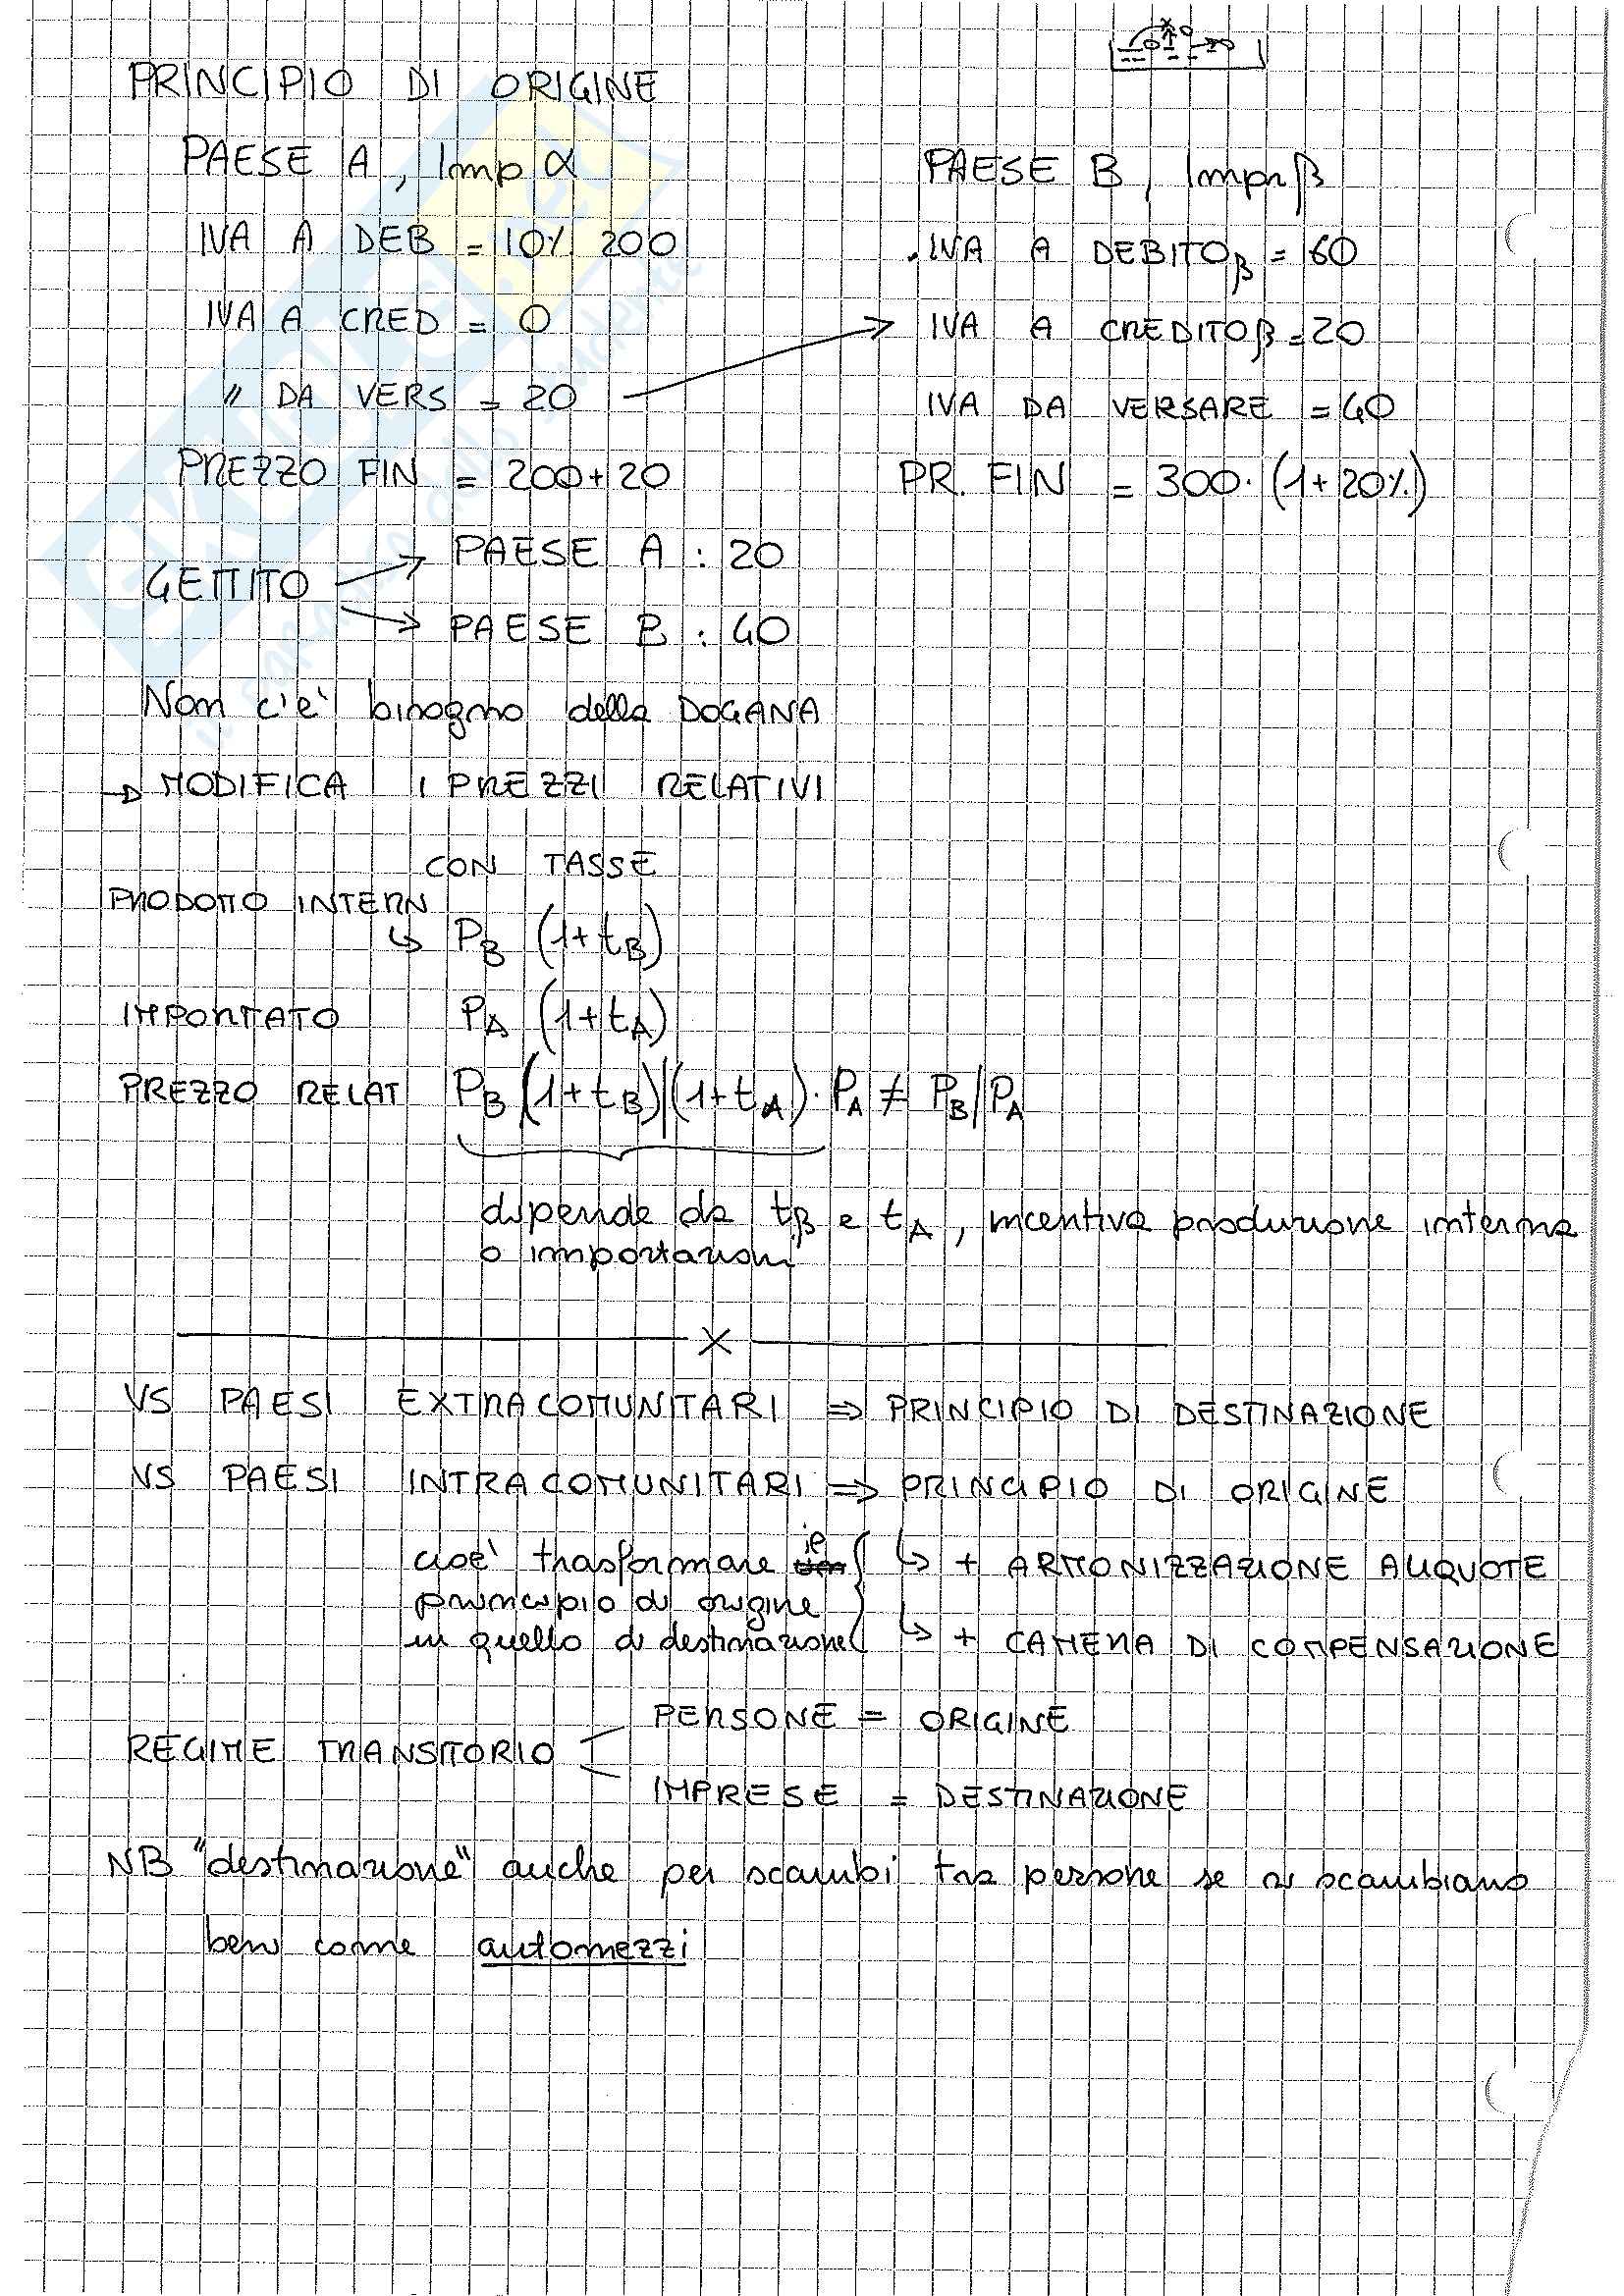 PRINCIPIO DI ORIGINE
PAESE A, Imp α
IVA A DEB = 10% 200
IVA A CRED = 0
" DA VERS = 20
PREZZO FIN = 200+20
PAESE B, Impr β
IVA A DEBITOβ = 60
IVA A CREDITOβ = 20
IVA DA VERSARE = 40
PR. FIN = 300·(1+20%)
GETTITO
PAESE A : 20
PAESE B : 40
Non c'è bisogno della DOGANA
→ MODIFICA I PREZZI RELATIVI
CON TASSE
PRODOTTO INTERN
↳ PB (1+tB)
IMPORTATO PA (1+tA)
PREZZO RELAT PB(1+tB)/(1+tA)·PA ≠ PB/PA
dipende da tB e tA, incentiva produzione interna
o importazioni
X
VS PAESI EXTRACOMUNITARI ⇒ PRINCIPIO DI DESTINAZIONE
VS PAESI INTRACOMUNITARI ⇒ PRINCIPIO DI ORIGINE
cioè trasformare il
principio di origine
in quello di destinazione
↳ + ARMONIZZAZIONE ALIQUOTE
↳ + CAMERA DI COMPENSAZIONE
REGIME TRANSITORIO
PERSONE = ORIGINE
IMPRESE = DESTINAZIONE
NB "destinazione" anche per scambi tra persone se si scambiano
beni come automezzi